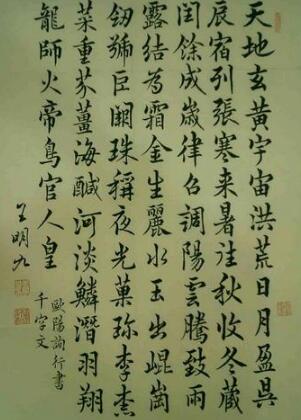 天地玄黃宇宙洪荒日月盈昃
辰宿列張寒来暑往秋收冬藏
閏餘成歲律呂調陽雲騰致雨
露結為霜金生麗水玉出崐崗
釼號巨闕珠稱夜光菓珍李柰
菜重芥薑海鹹河淡鱗潛羽翔
龍師火帝鳥官人皇
歐陽詢行書
千字文
王明九